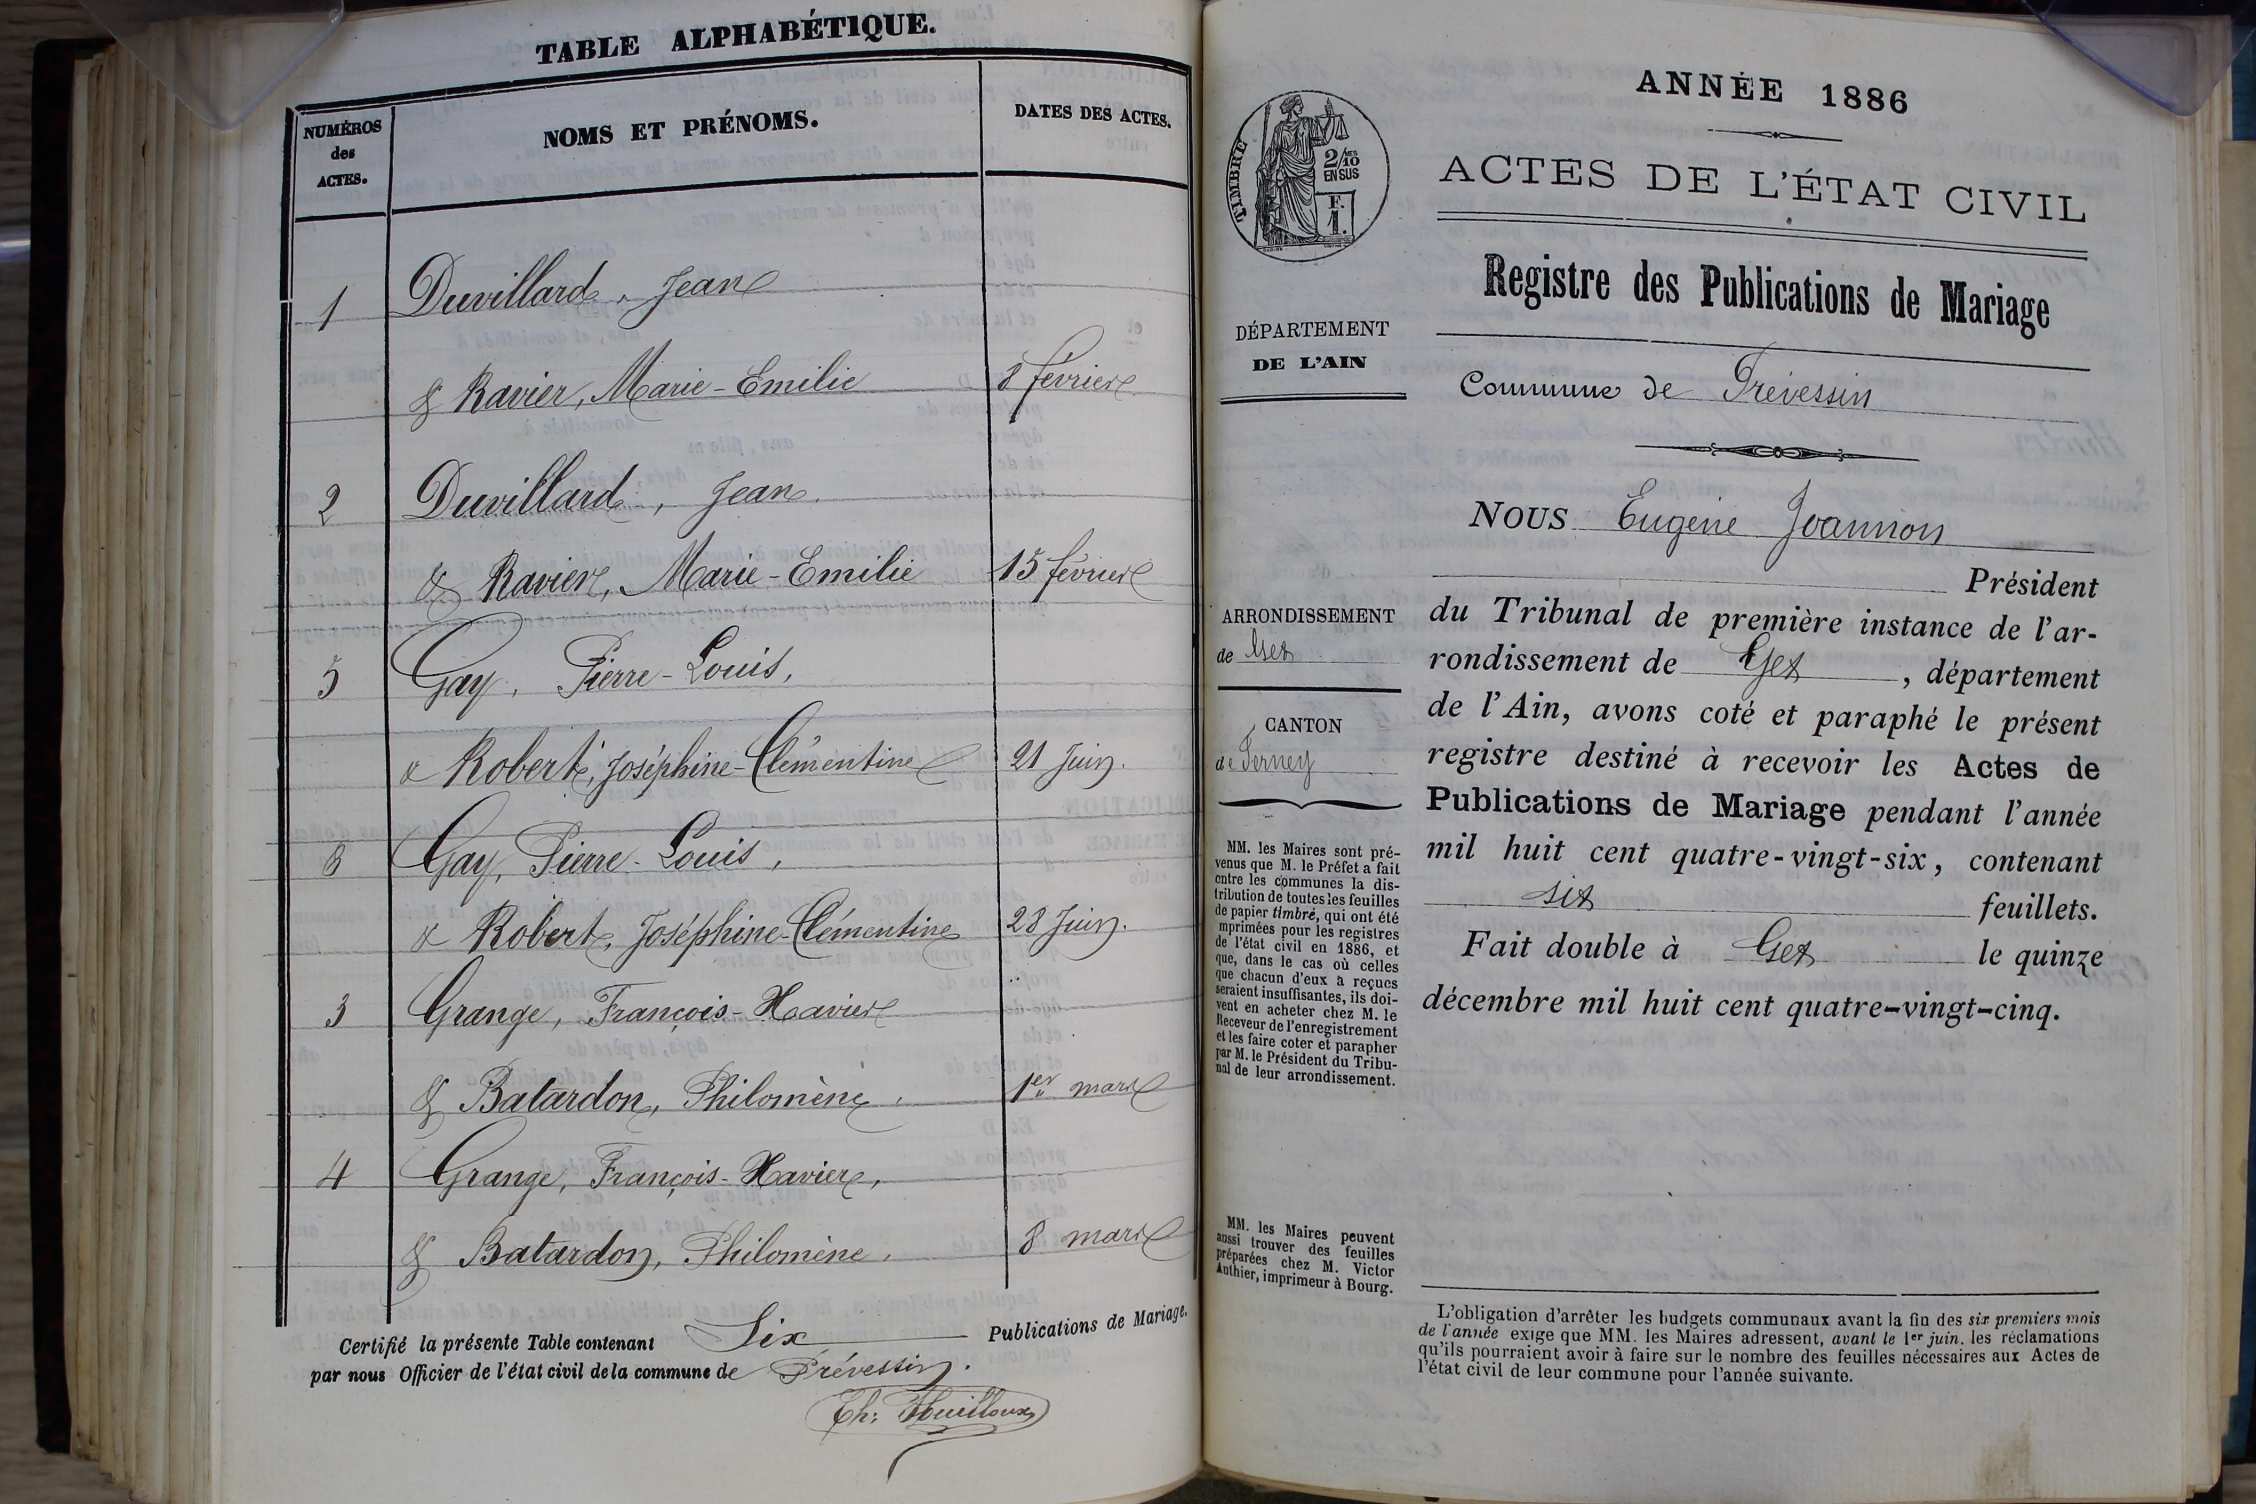 TABLE ALPHABÉTIQUE.
NUMÉROS
des
ACTES.
NOMS ET PRÉNOMS.
DATES DES ACTES.
1 Duvillard, Jean
& Ravier, Marie-Emilie 8 février
2 Duvillard, Jean
& Ravier, Marie-Emilie 15 février
5 Gay, Pierre-Louis,
& Robert, Joséphine-Clémentine 21 Juin.
6 Gay, Pierre-Louis,
& Robert, Joséphine-Clémentine 28 Juin.
3 Grange, François-Xavier
& Batardon, Philomène, 1er mars
4 Grange, François-Xavier,
& Batardon, Philomène, 8 mars
Certifié la présente Table contenant Six Publications de Mariage.
par nous Officier de l'état civil de la commune de Prévessin.
ANNÉE 1886
ACTES DE L'ÉTAT CIVIL
TIMBRE
2/10
EN SUS
F.
1.
Registre des Publications de Mariage
DÉPARTEMENT
DE L'AIN
Commune de Prévessin
NOUS Eugène Joannon
Président
du Tribunal de première instance de l'ar-
rondissement de Gex, département
de l'Ain, avons coté et paraphé le présent
registre destiné à recevoir les Actes de
Publications de Mariage pendant l'année
mil huit cent quatre-vingt-six, contenant
six feuillets.
Fait double à Gex le quinze
décembre mil huit cent quatre-vingt-cinq.
ARRONDISSEMENT
de Gex
CANTON
de Ferney
MM. les Maires sont pré-
venus que M. le Préfet a fait
entre les communes la dis-
tribution de toutes les feuilles
de papier timbré, qui ont été
imprimées pour les registres
de l'état civil en 1886, et
que, dans le cas où celles
que chacun d'eux a reçues
seraient insuffisantes, ils doi-
vent en acheter chez M. le
Receveur de l'enregistrement
et les faire coter et parapher
par M. le Président du Tribu-
nal de leur arrondissement.
MM. les Maires peuvent
aussi trouver des feuilles
préparées chez M. Victor
Authier, imprimeur à Bourg.
L'obligation d'arrêter les budgets communaux avant la fin des six premiers mois
de l'année exige que MM. les Maires adressent, avant le 1er juin, les réclamations
qu'ils pourraient avoir à faire sur le nombre des feuilles nécessaires aux Actes de
l'état civil de leur commune pour l'année suivante.